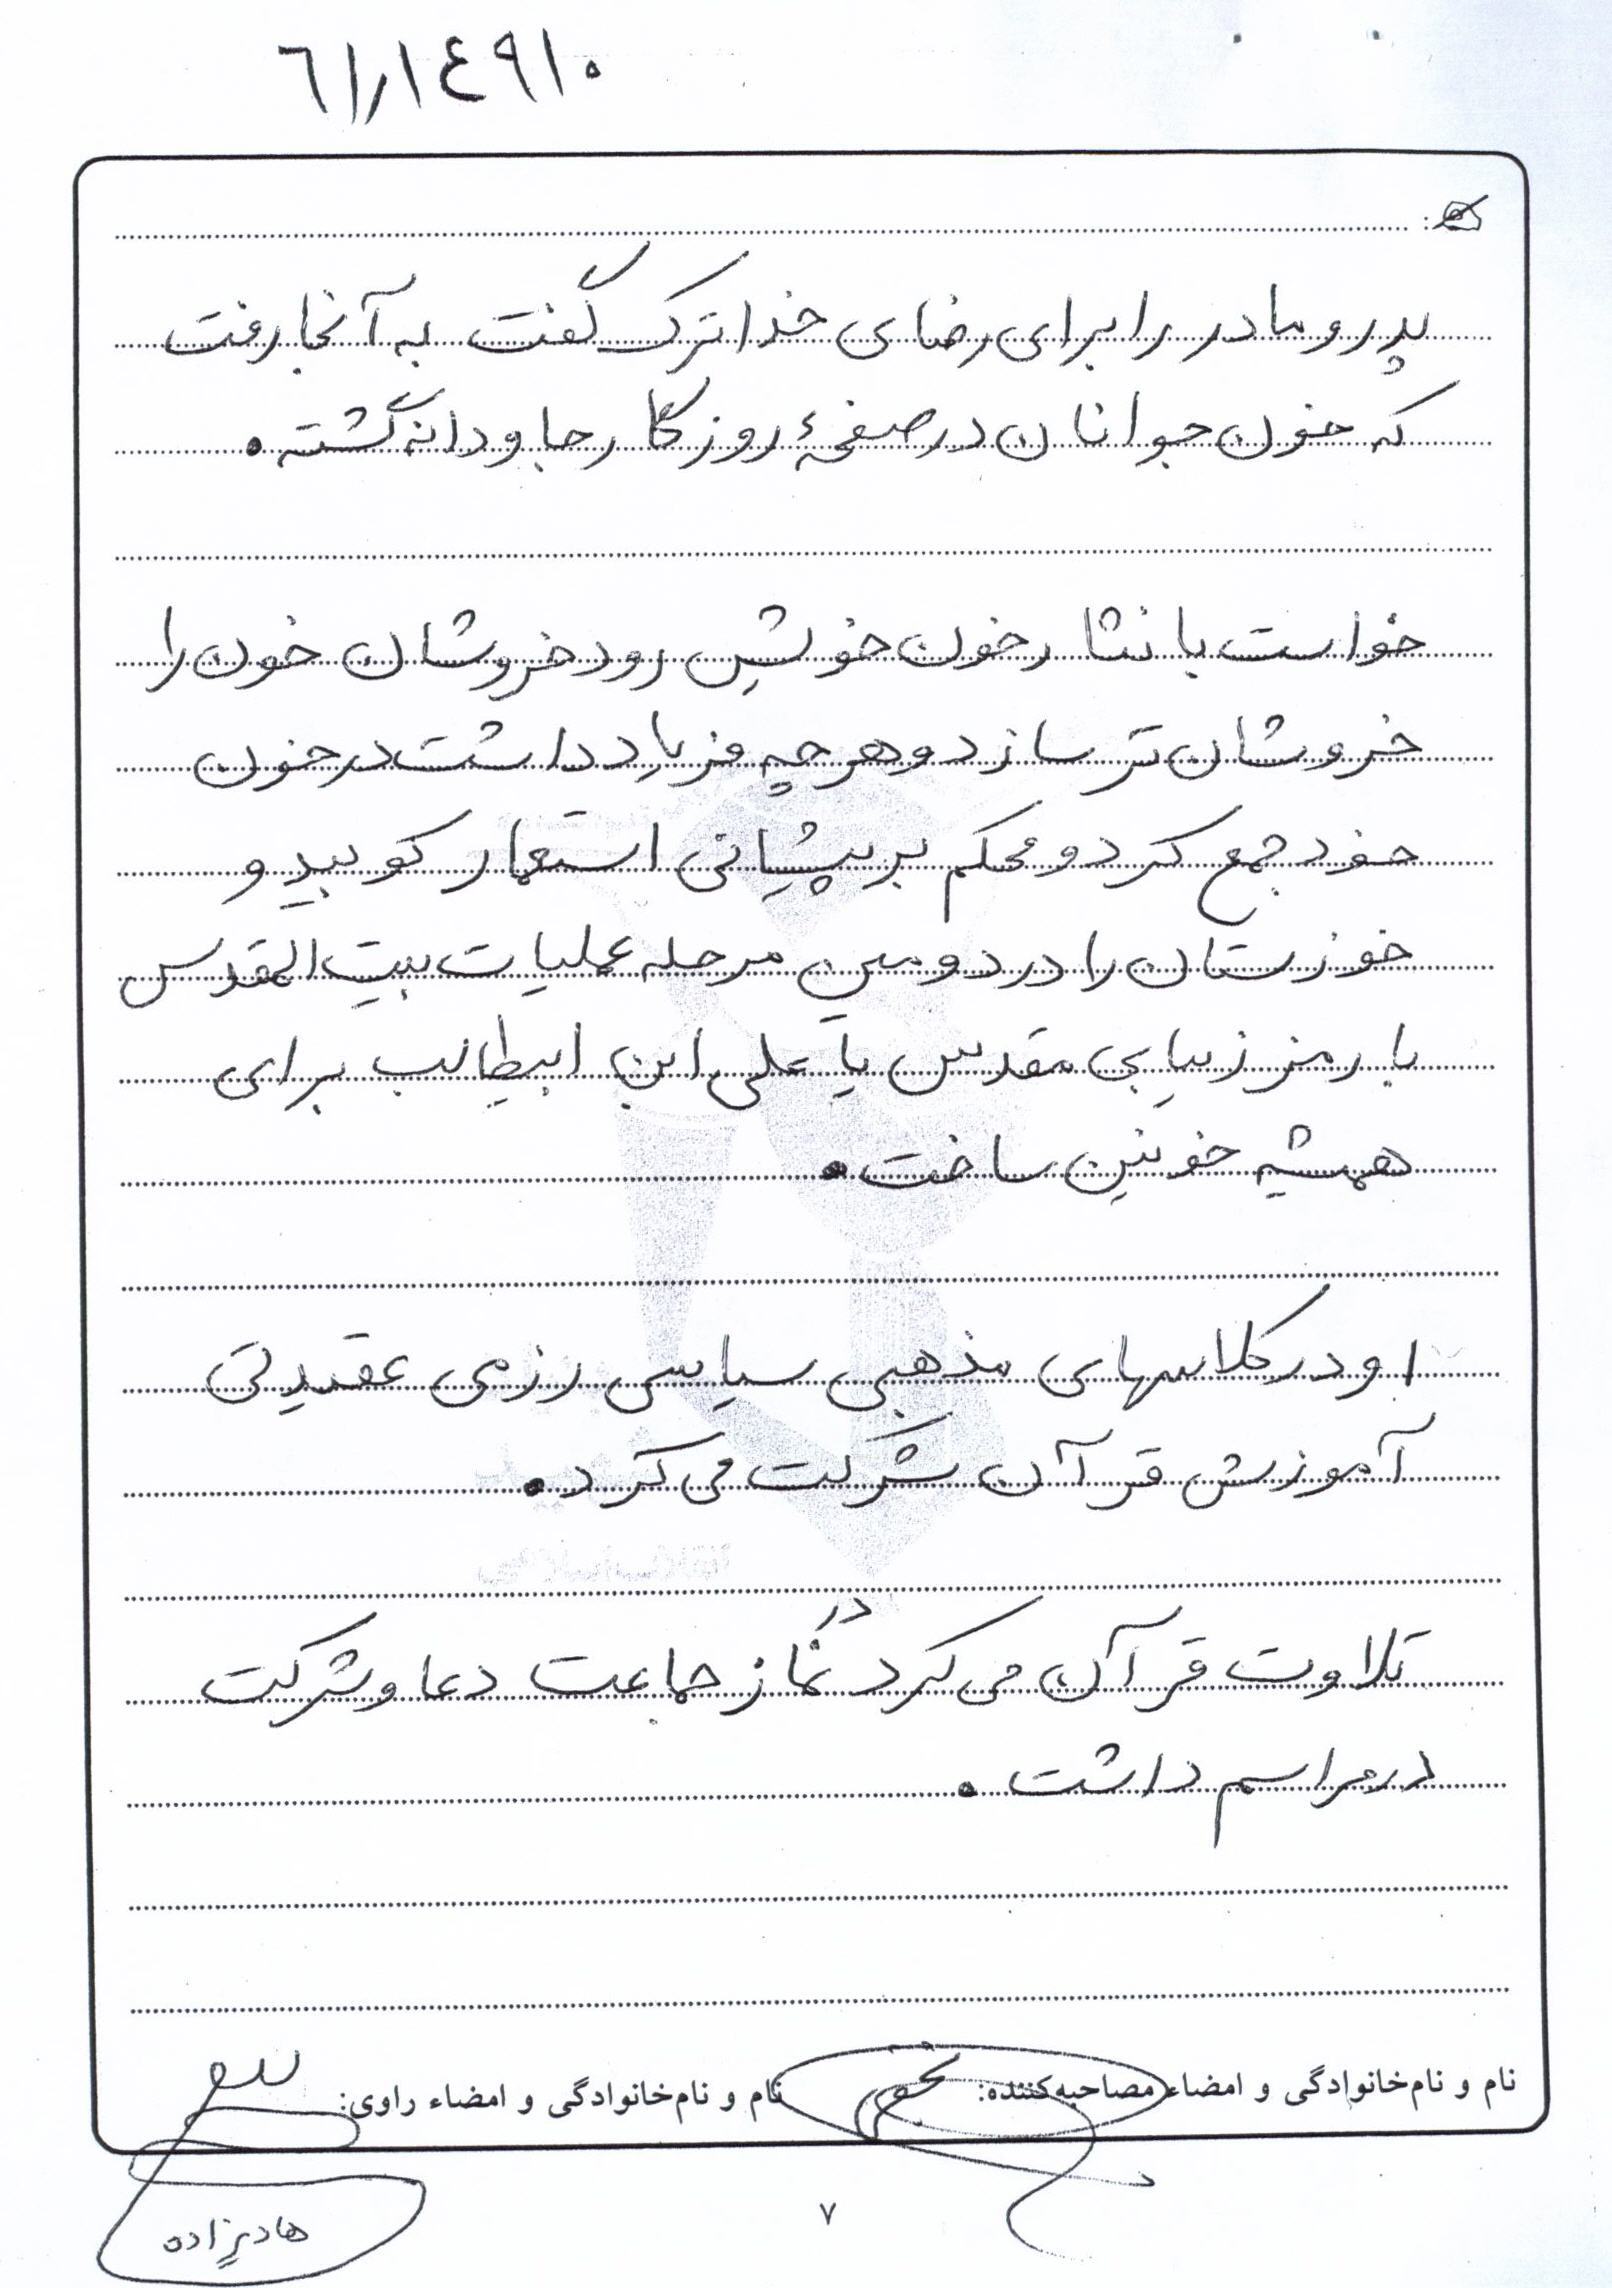 ٦١٫١٤٩١٠
پدر و مادر را برای رضای خدا ترک گفت به آنجا رفت
که خون جوانان در صفحهٔ روزگار جاودانه گشته.
خواست با نثار خون خویش رود خروشان خون را
خروشان تر سازد و هر چه فریاد داشت در خون
خود جمع کرد و محکم بر پیشانی استعمار کوبید و
خوزستان را در دومین مرحله عملیات بیت المقدس
با رمز زیبایی مقدس یا علی ابن ابیطالب برای
همیشه خونین ساخت.
او در کلاسهای مذهبی سیاسی رزمی عقیدتی
آموزش قرآن شرکت می کرد.
تلاوت قرآن می کرد در نماز جماعت دعا و شرکت
در مراسم داشت.
نام و نام‌خانوادگی و امضاء مصاحبه‌کننده: نام و نام‌خانوادگی و امضاء راوی:
هادیزاده
۷